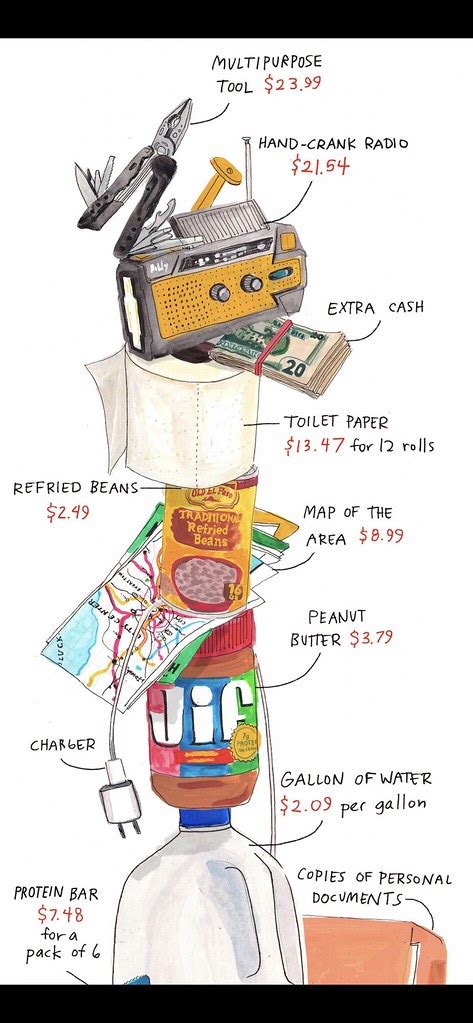 MULTIPURPOSE
TOOL $23.99
HAND-CRANK RADIO
$21.54
EXTRA CASH
20
TOILET PAPER
$13.47 for 12 rolls
REFRIED BEANS
$2.49
OLD EL PASO
TRADITIONAL
Refried
Beans
16
OZ
MAP OF THE
AREA $8.99
PEANUT
BUTTER $3.79
JIF
7g
PROTEIN
CHARGER
GALLON OF WATER
$2.09 per gallon
PROTEIN BAR
$7.48
for a
pack of 6
COPIES OF PERSONAL
DOCUMENTS